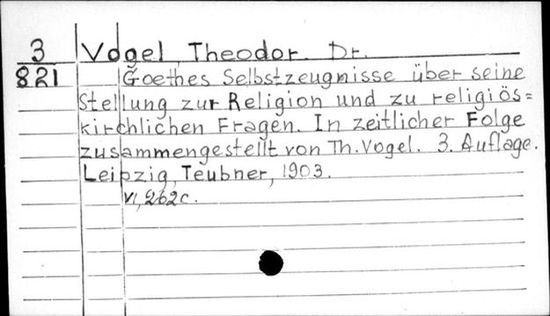 3 Vogel, Theodor. Dr.
821 Goethes Selbstzeugnisse über seine
Stellung zur Religion und zu religiös=
kirchlichen Fragen. In zeitlicher Folge
zusammengestellt von Th. Vogel. 3. Auflage.
Leipzig, Teubner, 1903.
VI, 262 c.